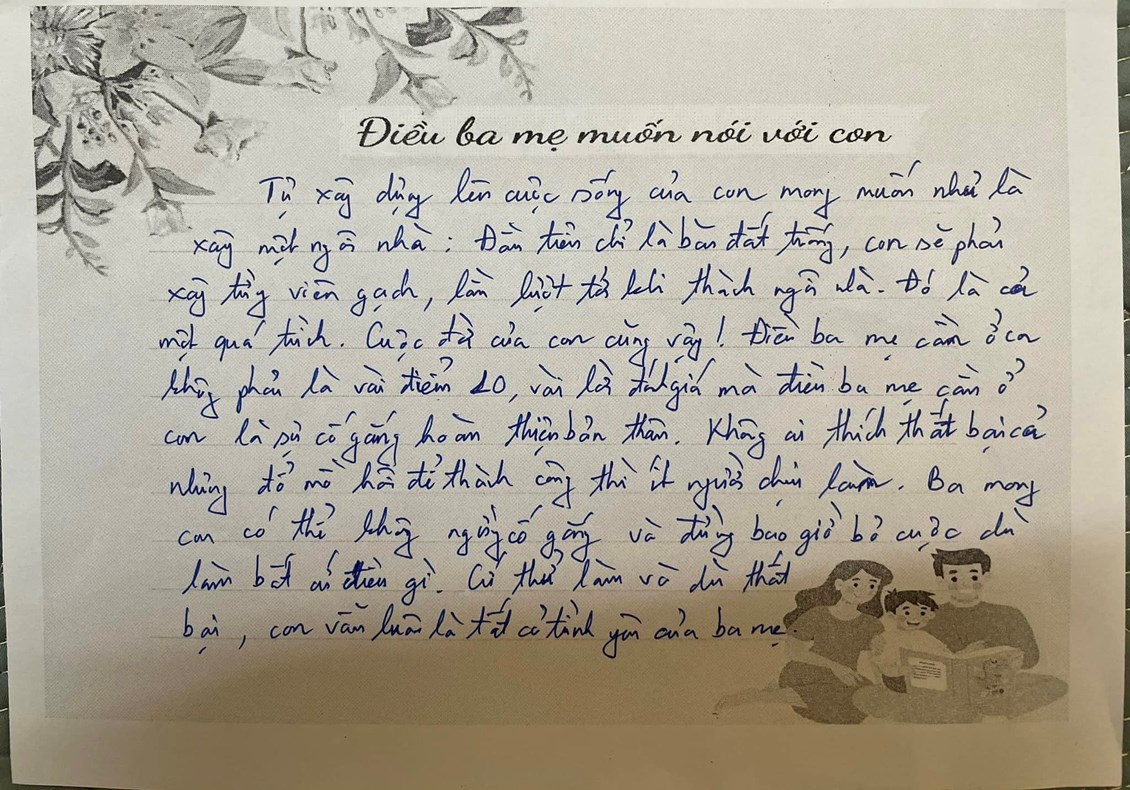 Điều ba mẹ muốn nói với con
Tự xây dựng lên cuộc sống của con mong muốn như là
xây một ngôi nhà : Đầu tiên chỉ là bãi đất trống, con sẽ phải
xây từng viên gạch, lần lượt tới khi thành ngôi nhà. Đó là cả
một quá trình. Cuộc đời của con cũng vậy! Điều ba mẹ cần ở con
không phải là vài điểm 10, vài lời đánh giá mà điều ba mẹ cần ở
con là sự cố gắng hoàn thiện bản thân. Không ai thích thất bại cả
nhưng đổ mồ hôi để thành công thì ít người chịu làm. Ba mong
con có thể không ngừng cố gắng và đừng bao giờ bỏ cuộc dù
làm bất cứ điều gì. Cứ thử làm và dù thất
bại, con vẫn luôn là tất cả tình yêu của ba mẹ.